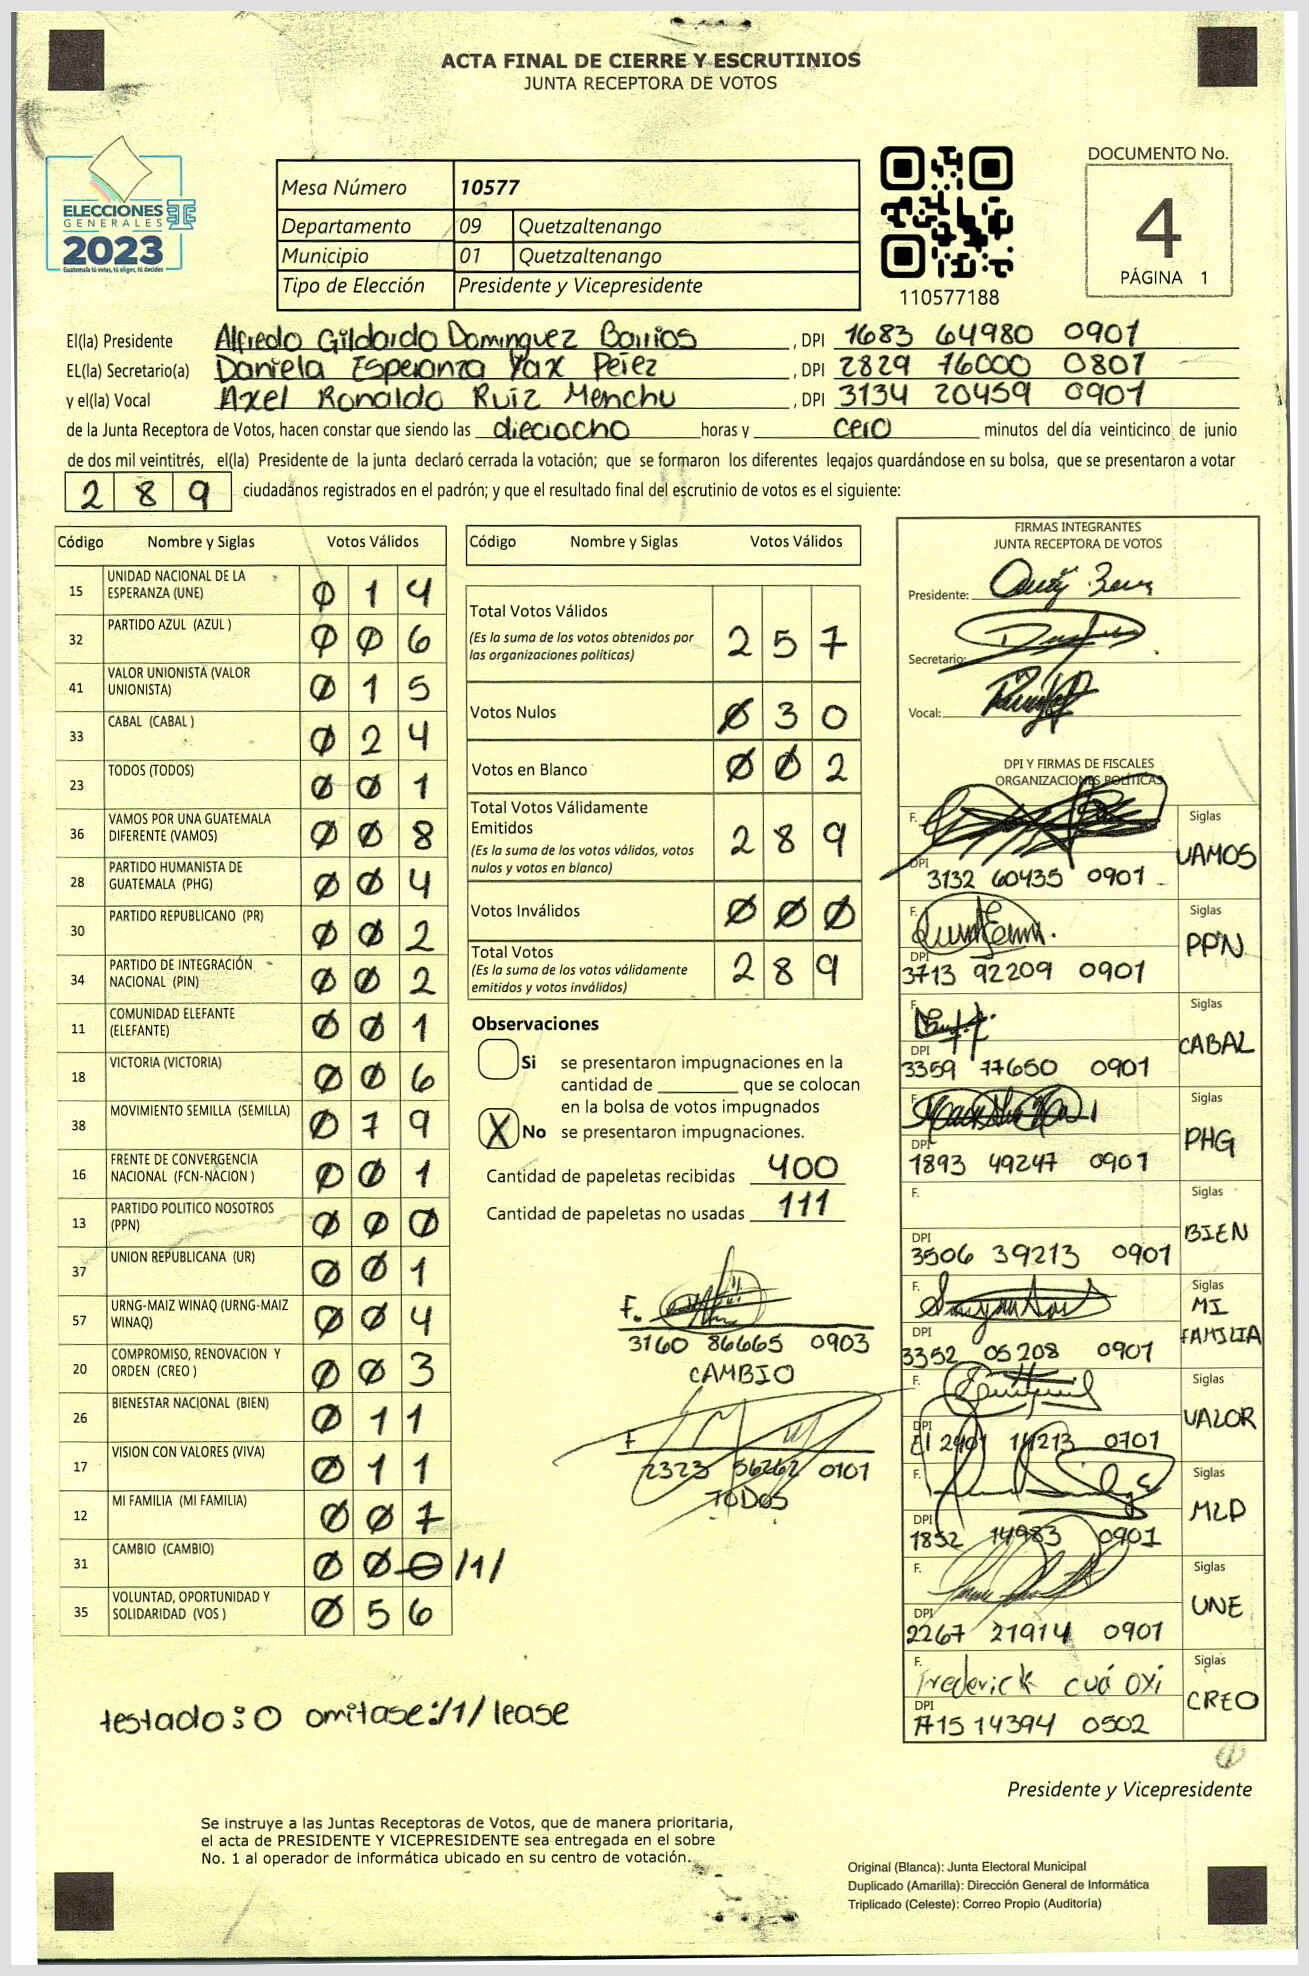 ACTA FINAL DE CIERRE Y ESCRUTINIOS
JUNTA RECEPTORA DE VOTOS
ELECCIONES
GENERALES
2023
Guatemala tú votas, tú eliges, tú decides
Mesa Número 10577
Departamento 09 Quetzaltenango
Municipio 01 Quetzaltenango
Tipo de Elección Presidente y Vicepresidente
110577188
DOCUMENTO No.
4
PÁGINA 1
El(la) Presidente Alfredo Gildardo Dominguez Barrios, DPI 1683 64980 0901
EL(la) Secretario(a) Daniela Esperanza Yax Pérez, DPI 2829 76000 0801
y el(la) Vocal Axel Ronaldo Ruiz Menchu, DPI 3134 20459 0901
de la Junta Receptora de Votos, hacen constar que siendo las dieciocho horas y cero minutos del día veinticinco de junio
de dos mil veintitrés, el(la) Presidente de la junta declaró cerrada la votación; que se formaron los diferentes legajos guardándose en su bolsa, que se presentaron a votar
289 ciudadanos registrados en el padrón; y que el resultado final del escrutinio de votos es el siguiente:
Código Nombre y Siglas Votos Válidos
15 UNIDAD NACIONAL DE LA ESPERANZA (UNE) 014
32 PARTIDO AZUL (AZUL ) 006
41 VALOR UNIONISTA (VALOR UNIONISTA) 015
33 CABAL (CABAL ) 024
23 TODOS (TODOS) 001
36 VAMOS POR UNA GUATEMALA DIFERENTE (VAMOS) 008
28 PARTIDO HUMANISTA DE GUATEMALA (PHG) 004
30 PARTIDO REPUBLICANO (PR) 002
34 PARTIDO DE INTEGRACIÓN NACIONAL (PIN) 002
11 COMUNIDAD ELEFANTE (ELEFANTE) 001
18 VICTORIA (VICTORIA) 006
38 MOVIMIENTO SEMILLA (SEMILLA) 079
16 FRENTE DE CONVERGENCIA NACIONAL (FCN-NACION ) 001
13 PARTIDO POLITICO NOSOTROS (PPN) 000
37 UNION REPUBLICANA (UR) 001
57 URNG-MAIZ WINAQ (URNG-MAIZ WINAQ) 004
20 COMPROMISO, RENOVACION Y ORDEN (CREO ) 003
26 BIENESTAR NACIONAL (BIEN) 011
17 VISION CON VALORES (VIVA) 011
12 MI FAMILIA (MI FAMILIA) 007
31 CAMBIO (CAMBIO) 000 /1/
35 VOLUNTAD, OPORTUNIDAD Y SOLIDARIDAD (VOS ) 056
testado: 0 omitase:/1/ lease
Código Nombre y Siglas Votos Válidos
Total Votos Válidos 257
(Es la suma de los votos obtenidos por
las organizaciones políticas)
Votos Nulos 030
Votos en Blanco 002
Total Votos Válidamente
Emitidos 289
(Es la suma de los votos válidos, votos
nulos y votos en blanco)
Votos Inválidos 000
Total Votos 289
(Es la suma de los votos válidamente
emitidos y votos inválidos)
Observaciones
Si se presentaron impugnaciones en la
cantidad de ________ que se colocan
en la bolsa de votos impugnados
X No se presentaron impugnaciones.
Cantidad de papeletas recibidas 400
Cantidad de papeletas no usadas 111
F.
3160 86665 0903
CAMBIO
F
2323 56262 0101
TODOS
FIRMAS INTEGRANTES
JUNTA RECEPTORA DE VOTOS
Presidente:
Secretario:
Vocal:
DPI Y FIRMAS DE FISCALES
ORGANIZACIONES POLÍTICAS
F. Siglas
DPI 3132 60435 0901 VAMOS
F. Siglas
DPI 3713 92209 0901 PPN
F. Siglas
DPI 3359 77650 0901 CABAL
F. Siglas
DPI 1893 49247 0901 PHG
F. Siglas
DPI 3506 39213 0901 BIEN
F. Siglas
DPI 3352 05208 0901 MI FAMILIA
F. Siglas
DPI 2401 14213 0701 VALOR
F. Siglas
DPI 1852 14983 0901 MLP
F. Siglas
DPI 2267 21914 0901 UNE
F. Frederick cuá oxi Siglas
DPI 1715 14394 0502 CREO
Presidente y Vicepresidente
Se instruye a las Juntas Receptoras de Votos, que de manera prioritaria,
el acta de PRESIDENTE Y VICEPRESIDENTE sea entregada en el sobre
No. 1 al operador de informática ubicado en su centro de votación.
Original (Blanca): Junta Electoral Municipal
Duplicado (Amarilla): Dirección General de Informática
Triplicado (Celeste): Correo Propio (Auditoría)